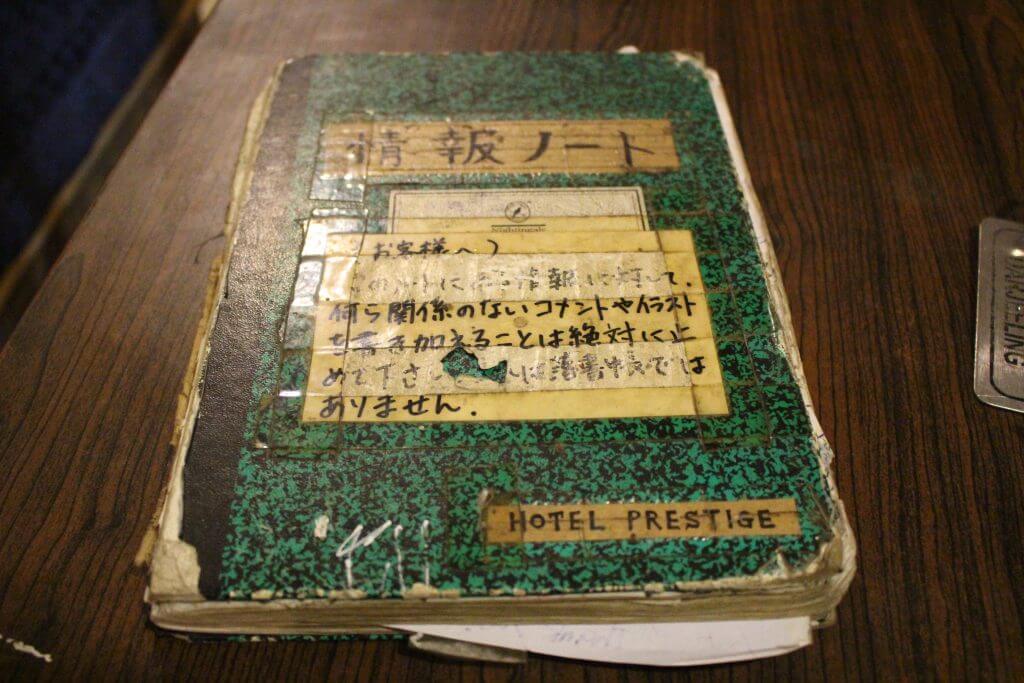 情報ノート
Nightingale
お客様へ)
このノートにある情報に対して、
何ら関係のないコメントやイラスト
を書き加えることは絶対に止
めて下さい は落書帳では
ありません.
HOTEL PRESTIGE
DARJEELING